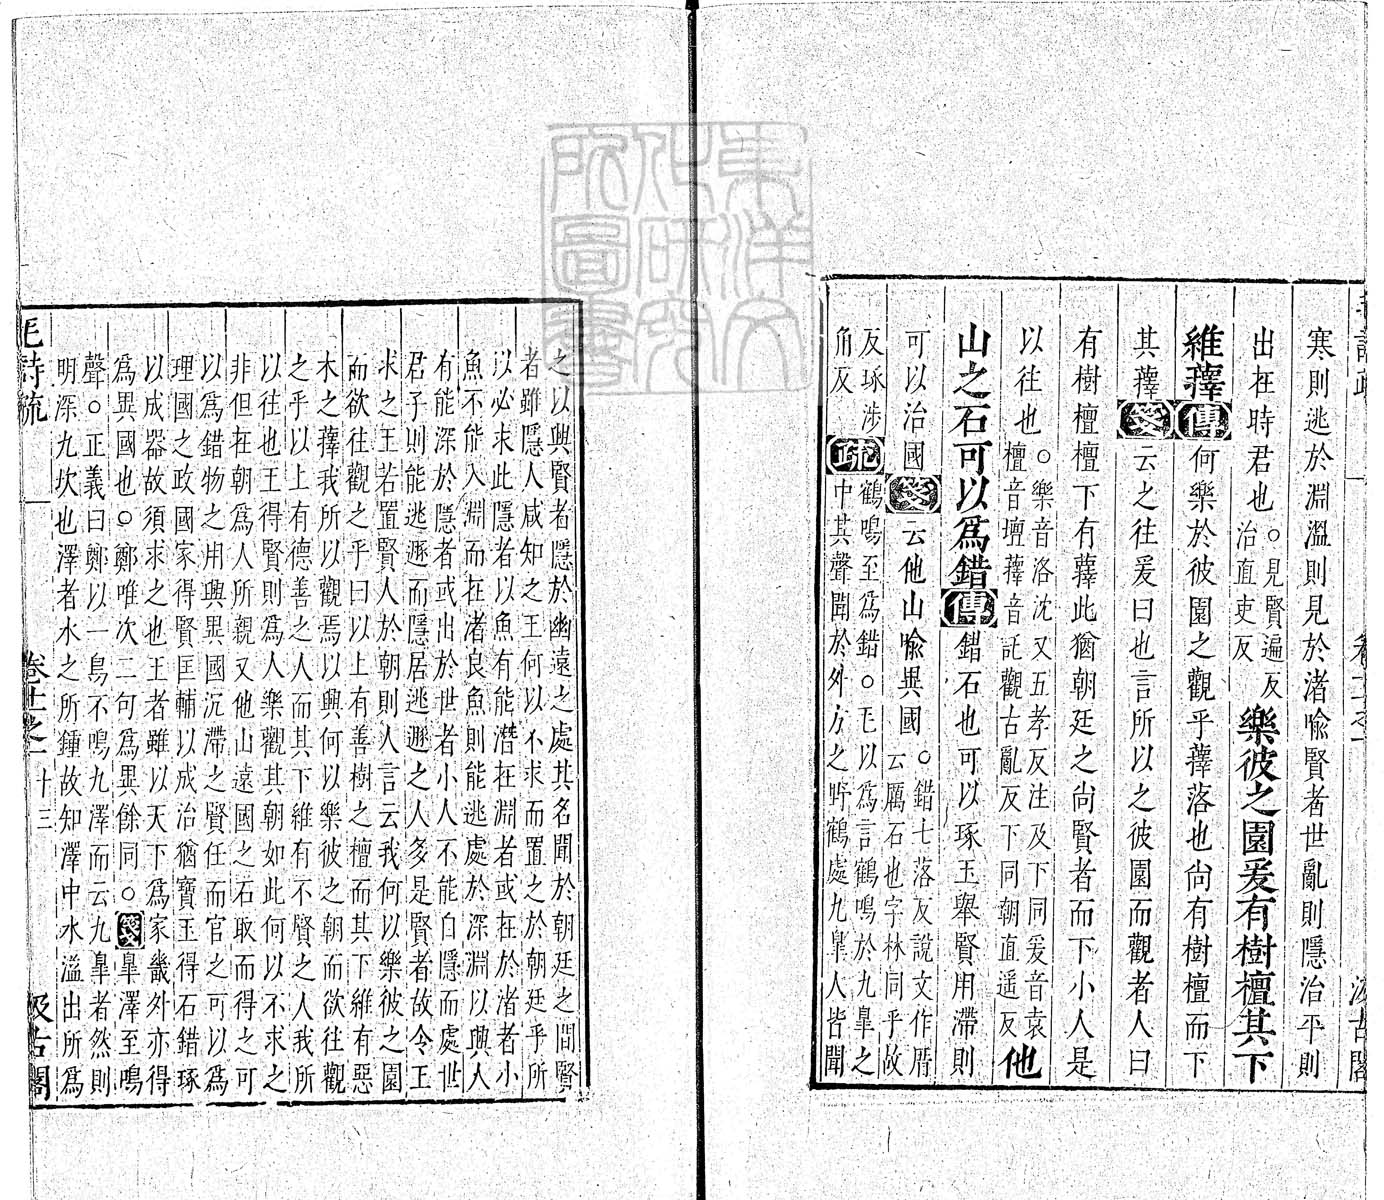 寒則逃於淵溫則見於渚喻賢者世亂則隱治平則
出在時君也○見賢遍反
治直吏反
樂彼之園爰有樹檀其下
維蘀傳何樂於彼園之觀乎蘀落也尚有樹檀而下
其蘀箋云之往爰曰也言所以之彼園而觀者人曰
有樹檀檀下有蘀此猶朝廷之尚賢者而下小人是
以往也○樂音洛沈又五孝反注及下同爰音袁
檀音壇蘀音託觀古亂反下同朝直遥反
他
山之石可以爲錯傳錯石也可以琢玉舉賢用滯則
可以治國箋云他山喻異國○錯七落反說文作厝
云厲石也字林同乎故
反琢涉
角反
疏鶴鳴至爲錯○毛以爲言鶴鳴於九臯之
中其聲聞於外方之野鶴處九臯人皆聞
之以興賢者隱於幽遠之處其名聞於朝廷之間賢
者雖隱人咸知之王何以不求而置之於朝廷乎所
以必求此隱者以魚有能潛在淵者或在於渚者小
魚不能入淵而在渚良魚則能逃處於深淵以興人
有能深於隱者或出於世者小人不能自隱而處世
君子則能逃遯而隱居逃遯之人多是賢者故令王
求之王若置賢人於朝則人言云我何以樂彼之園
而欲往觀之乎曰以上有善樹之檀而其下維有惡
木之蘀我所以觀焉以興何以樂彼之朝而欲往觀
之乎以上有德善之人而其下維有不賢之人我所
以往也王得賢則爲人樂觀其朝如此何以不求之
非但在朝爲人所親又他山遠國之石取而得之可
以爲錯物之用興異國沉滯之賢任而官之可以爲
理國之政國家得賢匡輔以成治猶寶玉得石錯琢
以成器故須求之也王者雖以天下爲家畿外亦得
爲異國也○鄭唯次二句爲異餘同○箋臯澤至鳴
聲○正義曰鄭以一鳥不鳴九澤而云九臯者然則
明深九坎也澤者水之所鍾故知澤中水溢出所爲
毛詩疏　卷十一之一　十三　汲古閣